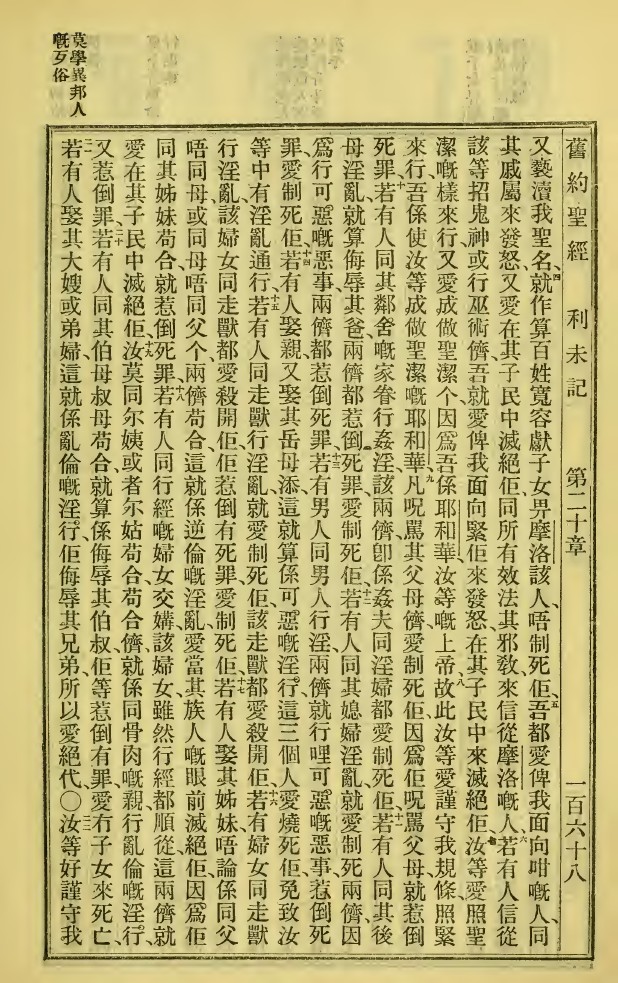 舊約聖經　利未記　第二十章　一百六十八
莫學異邦人
嘅歹俗
又褻瀆我聖名、四就作算百姓寬容獻子女畀摩洛該人、唔制死佢、五吾都愛俾我面向咁嘅人、同
其戚屬來發怒、又愛在其子民中滅絕佢、同所有效法其邪敎、來信從摩洛嘅人、六若有人信從
該等招鬼神、或行巫術儕、吾就愛俾我面向緊佢來發怒、在其子民中來滅絕佢、七汝等愛照聖
潔嘅樣來行、又愛成做聖潔个、因爲吾係耶和華汝等嘅上帝、八故此汝等愛謹守我規條、照緊
來行、吾係使汝等成做聖潔嘅耶和華、九凡呪罵其父母儕、愛制死佢、因爲佢呪罵父母、就惹倒
死罪、十若有人同其鄰舍嘅家眷行姦淫、該兩儕卽係姦夫同淫婦、都愛制死佢、十一若有人同其後
母淫亂、就算侮辱其爸、兩儕都惹倒死罪、愛制死佢、十二若有人同其媳婦淫亂、就愛制死兩儕、因
爲行可惡嘅惡事、兩儕都惹倒死罪、十三若有男人同男人行淫、兩儕就行哩可惡嘅惡事、惹倒死
罪、愛制死佢、十四若有人娶親、又娶其岳母添、這就算係可惡嘅淫行、這三個人愛燒死佢、免致汝
等中有淫亂通行、十五若有人同走獸行淫亂、就愛制死佢、該走獸都愛殺開佢、十六若有婦女同走獸
行淫亂、該婦女同走獸都愛殺開佢、佢惹倒有死罪、愛制死佢、十七若有人娶其姊妹、唔論係同父
唔同母、或同母唔同父个、兩儕苟合、這就係逆倫嘅淫亂、愛當其族人嘅眼前滅絕佢、因爲佢
同其姊妹苟合、就惹倒死罪、十八若有人同行經嘅婦女交媾、該婦女雖然行經都順從、這兩儕就
愛在其子民中滅絕佢、十九汝莫同尔姨、或者尔姑苟合、苟合儕、就係同骨肉嘅親、行亂倫嘅淫行、
又惹倒罪、二十若有人同其伯母叔母苟合、就算係侮辱其伯叔、佢等惹倒有罪、愛冇子女來死亡、
二一若有人娶其大嫂或弟婦、這就係亂倫嘅淫行、佢侮辱其兄弟、所以愛絕代、〇二二汝等好謹守我